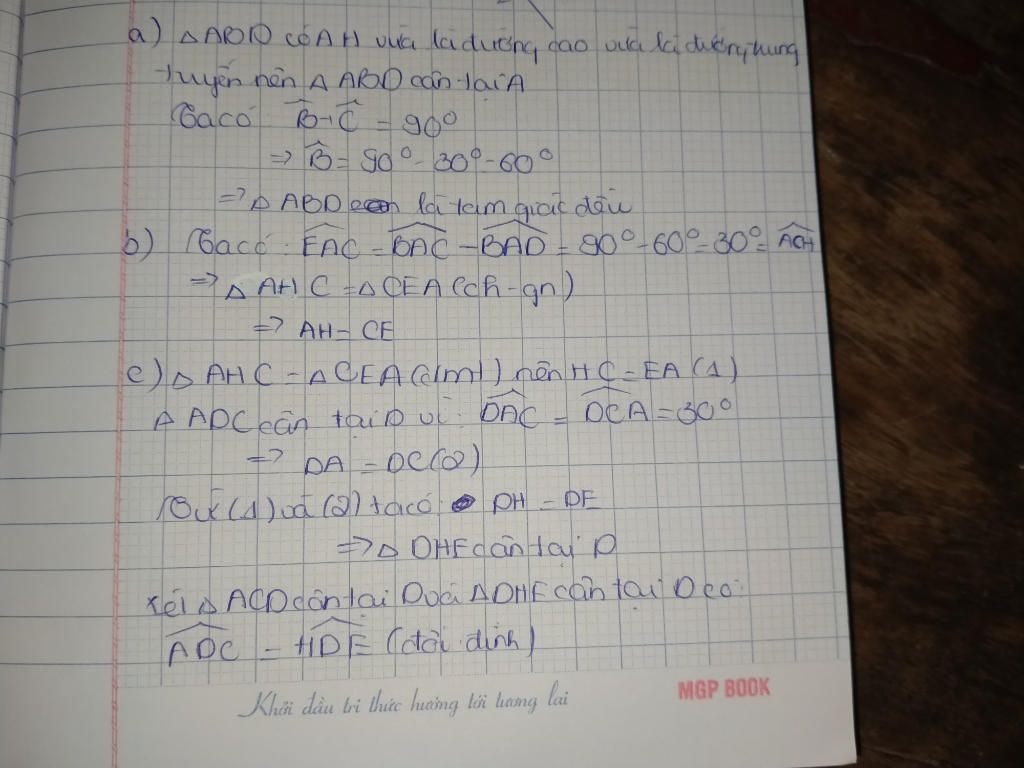 a) △ABD có AH vừa là đường cao vừa là đường trung
tuyến nên △ABD cân tại A
Ta có B̂+Ĉ = 90°
=> B̂ = 90° - 30° = 60°
=> △ABD là tam giác đều
b) Ta có: EAC = BAC - BAD = 90° - 60° = 30° = ACH
=> △AHC = △CEA (ch-gn)
=> AH = CE
c) △AHC = △CEA (cmt) nên HC = EA (1)
△ADC cân tại D vì: DAC = DCA = 30°
=> DA = DC (2)
Từ (1) và (2) ta có DH = DE
=> △DHE cân tại D
Xét △ACD cân tại D và △DHE cân tại D có:
ADC = HDE (đối đỉnh)
Khởi đầu tri thức hướng tới tương lai
MGP BOOK